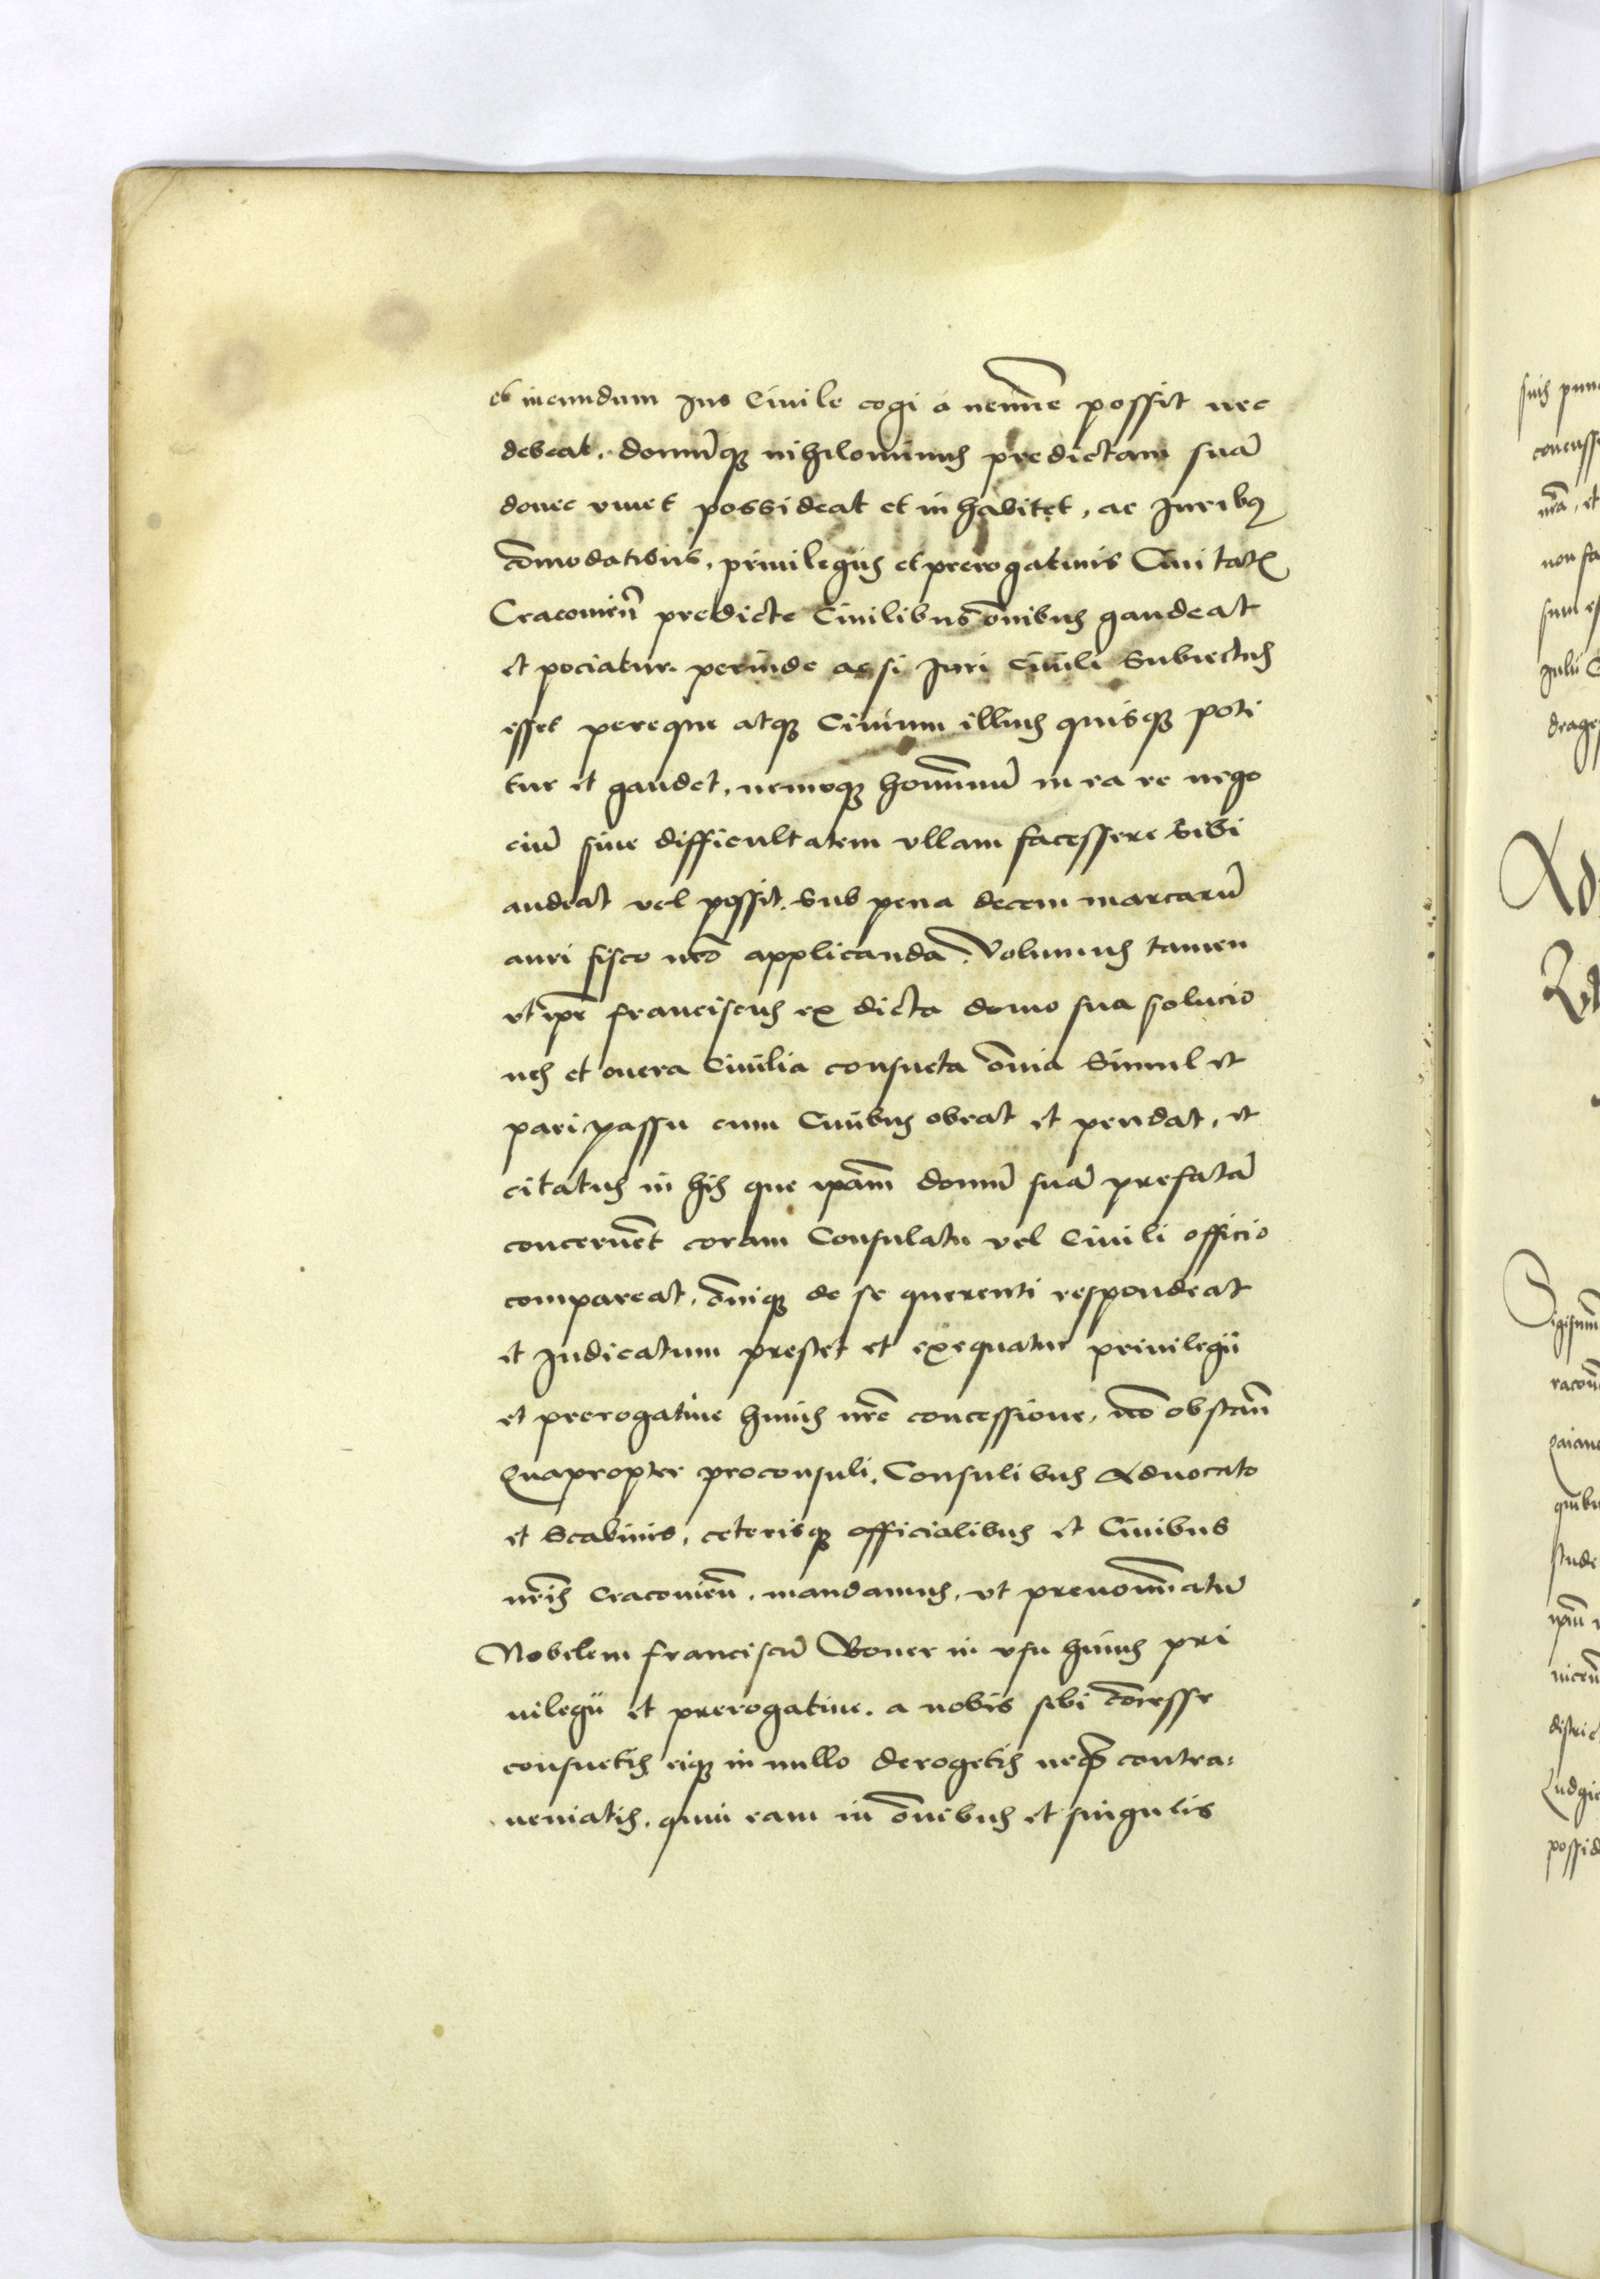 et ineundum Jus Ciuile cogi a nemine possit nec
debeat. domūqꝫ nihilominus predictam suā
donec viuet possideat et inhabitet, ac Juribꝰ
cōmodatibus, priuilegiis et prerogatiuis Ciuitatꝭ
Cracouien̄ predicte Ciuilibus ōnibus gaudeat
et pociatur. perinde ac si Juri Ciuili Subiectus
esset pereque atqꝫ Ciuium illius quisqꝫ poti
tur et gaudet, nemoqꝫ hominū in ea re nego
ciū siue difficultatem vllam facessere Sibi
audeat vel possit. Sub pena decem marcarū
auri fisco nr̄o applicandā. Volumus tamen
vt ip̄e franciscus ex dicta domo sua solucio
nes et onera Ciuilia consueta ōnia Simul et
pari passu cum Ciuibus obeat et pendat, et
citatus in his que ip̄am domū suā prefatā
concernēt coram Consulatu vel Ciuili officio
compareat, ōniqꝫ de se querenti respondeat
et Judicatum prestet et exequatur priuilegii
et prerogatiue huius nr̄e concessione, nō obstan̄
Quapropter proconsuli, Consulibus Aduocato
et Scabinis, ceterisqꝫ officialibus et Ciuibus
nr̄is Cracouien̄. mandamus, vt prenomīatū
Nobilem franciscū Boner in vsu huius pri
uilegii et prerogatiue. a nobis sibi cōcesse
consuetis eiqꝫ in nullo derogetis neqꝫ contra=
ueniatis. quin eam in ōnibus et singulis
suis
nr̄a, et
non fa
sum
Ad
possid